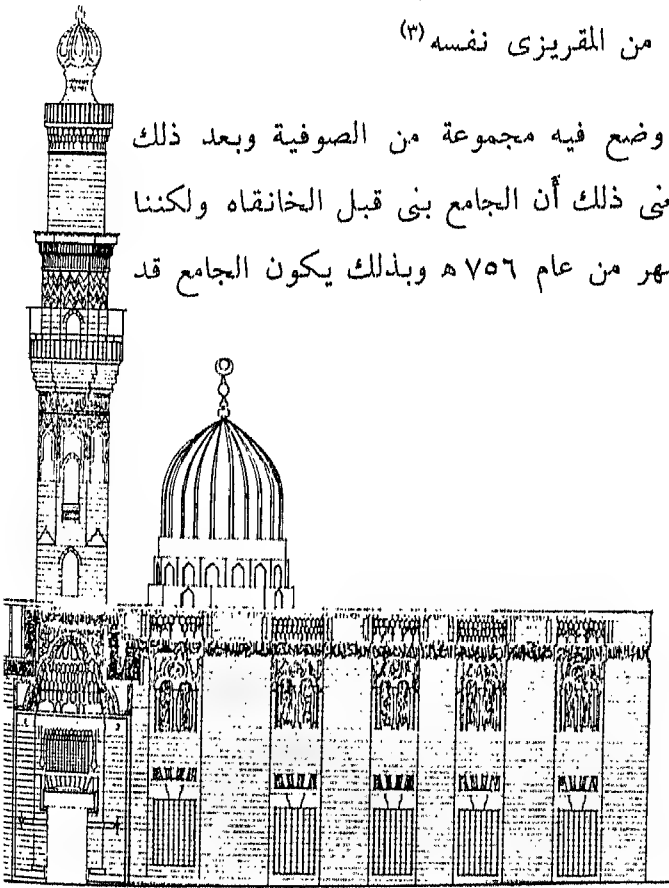 من المقريزى نفسه (٣)
وضع فيه مجموعة من الصوفية وبعد ذلك
ذلك أن الجامع بنى قبل الخانقاه ولكننا
من عام ٧٥٦ هـ وبذلك يكون الجامع قد